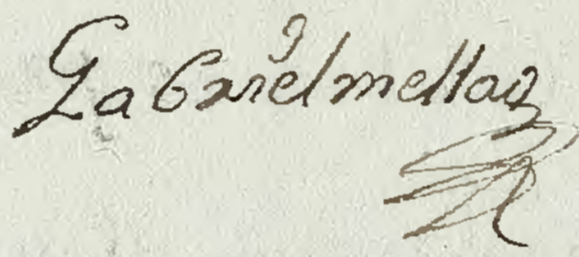 Gabriel mellao